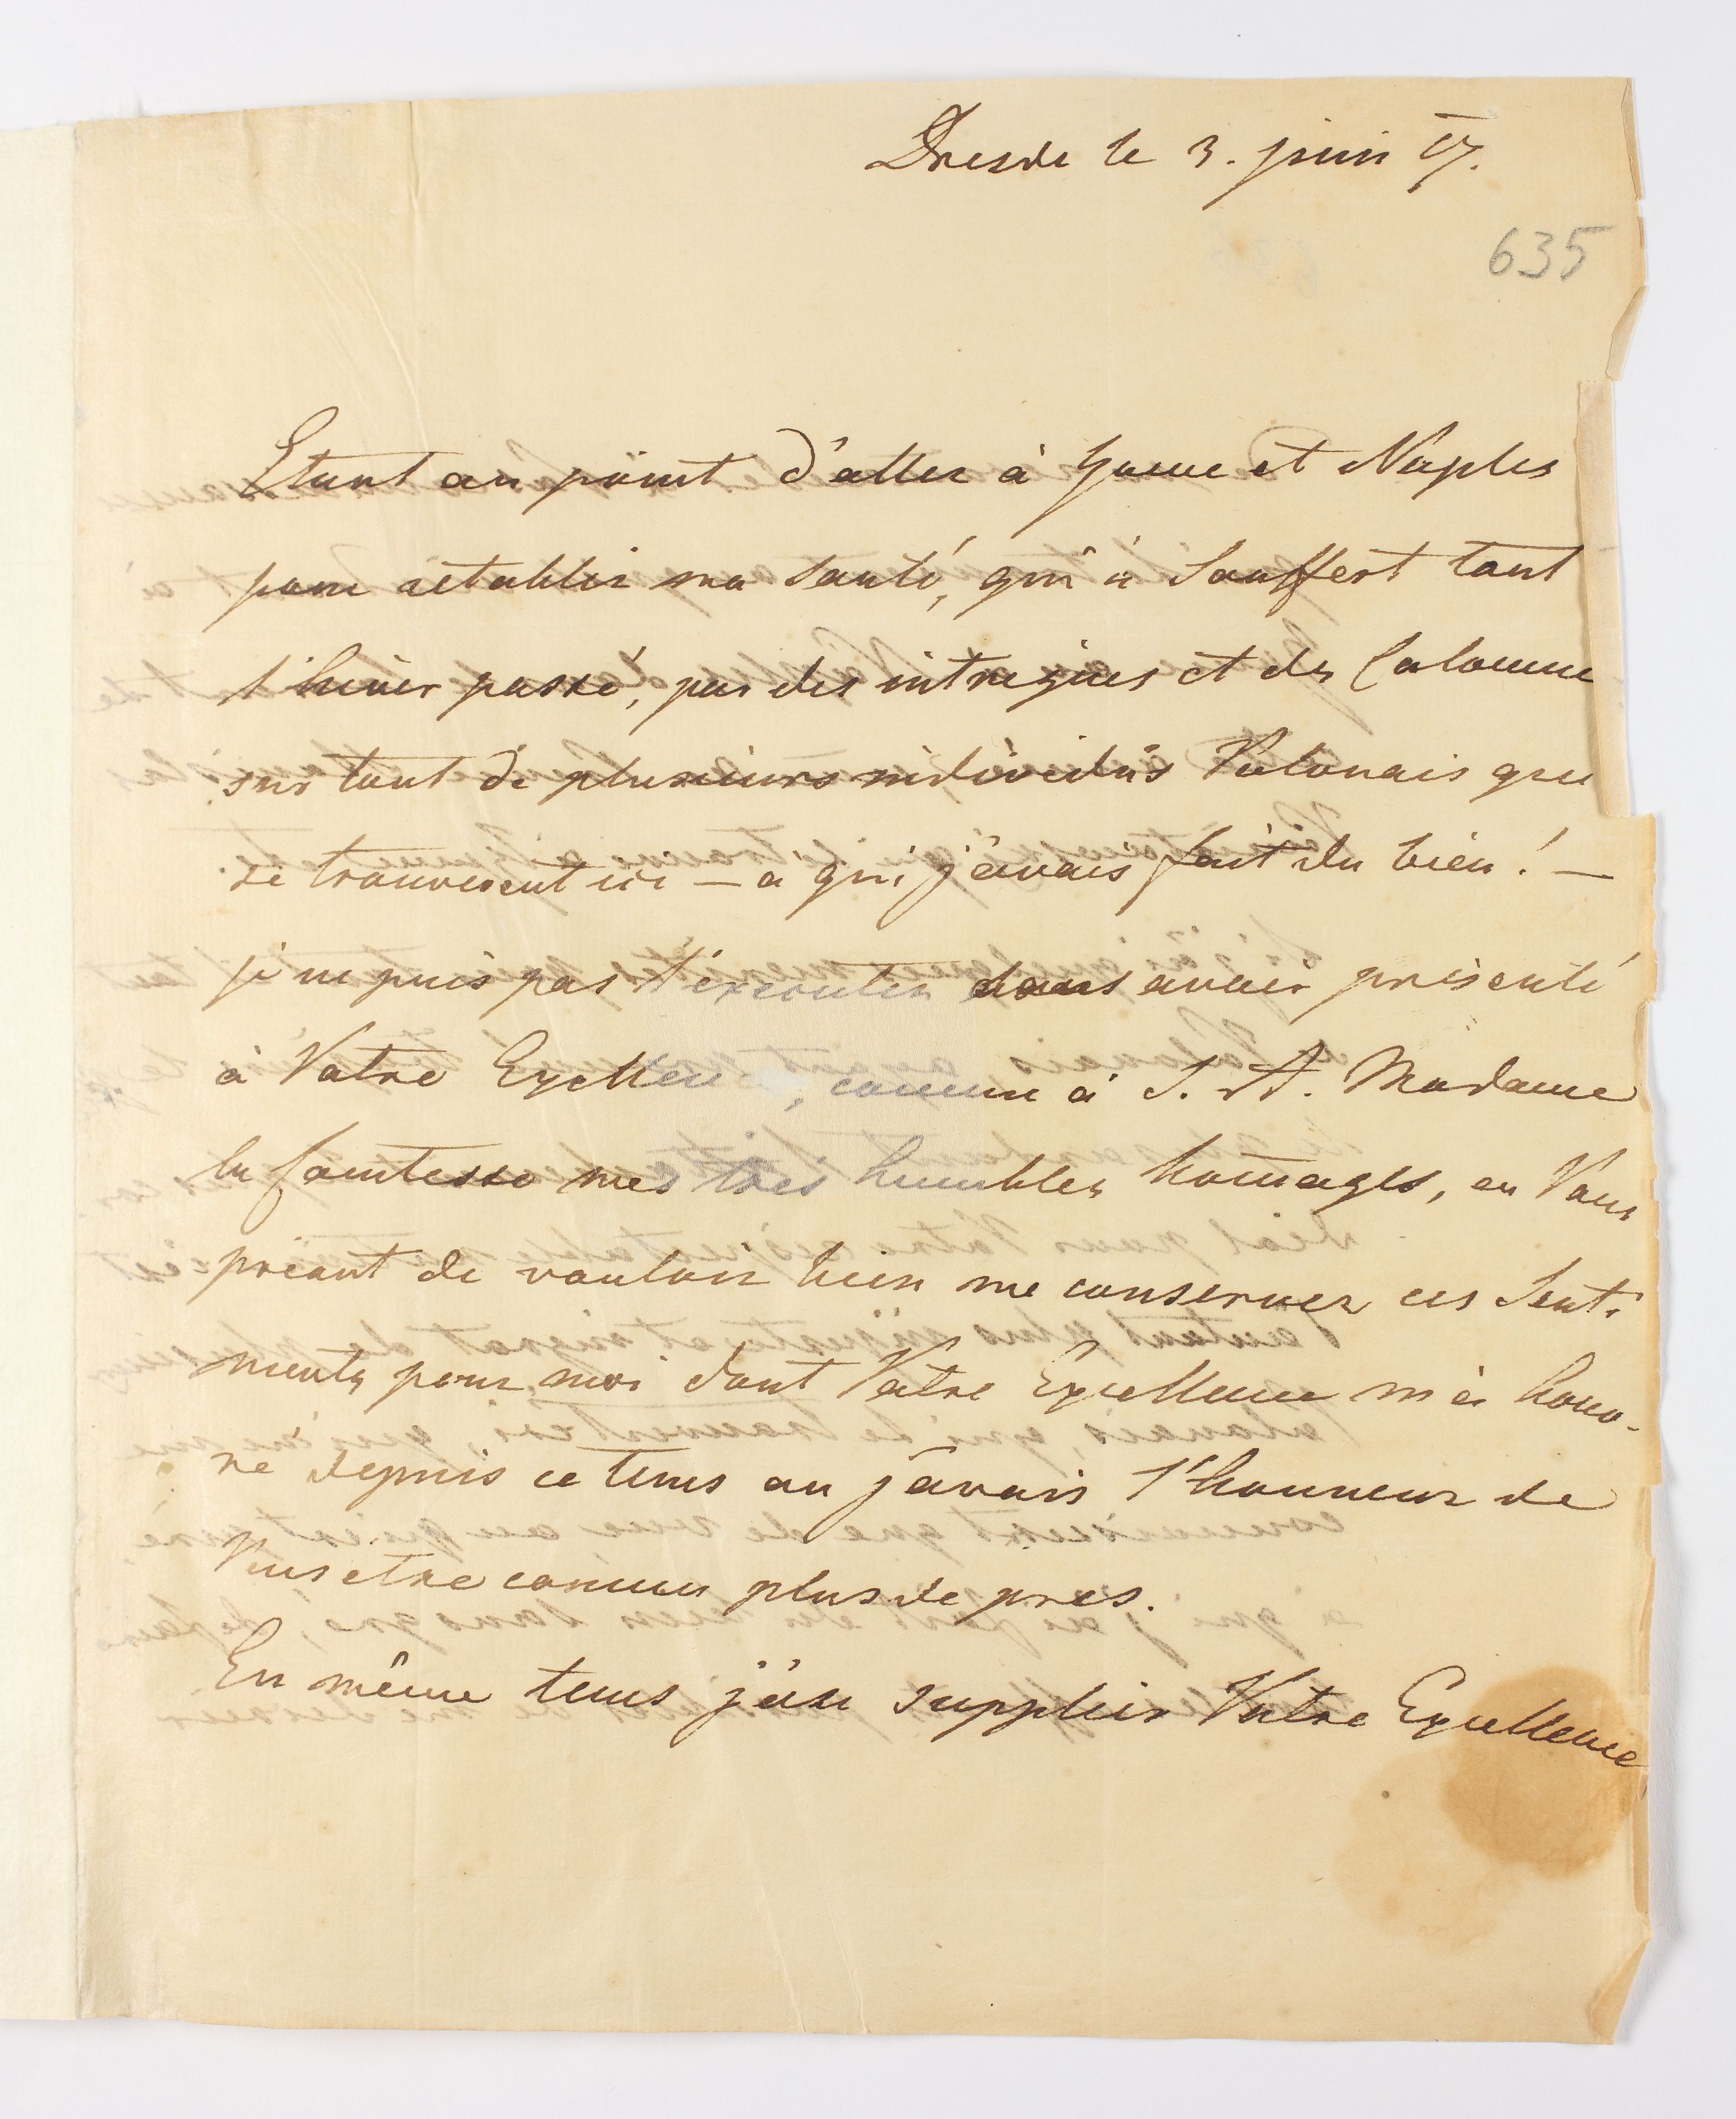 Dresde le 3. juin 17.
635
Etant au point d'aller à Rome et Naples
pour rétablir ma Santé, qui a Souffert tant
l'hiver passé, par des intrigues et des Calomnie
sur tout de plusieurs individus Polonais qui
se trouverent ici — a qui j'avais fait du bien! —
je ne puis pas l'executer sans avoir présenté
à Votre Excellence, comme à S. A. Madame
la Comtesse mes tres humbles homages, en Vous
priant de vouloir bien me conserver ces Senti
ments pour moi dont Votre Excellence m'a hono-
ré depuis ce tems ou j'avais l'honneur de
Vous etre connu plus de pres.
En même tems j'ose supplier Votre Excellence